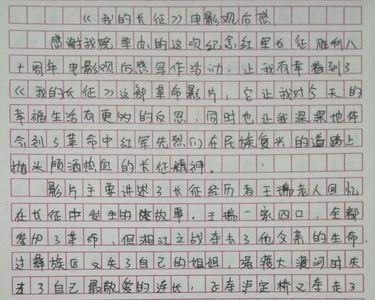 《我的长征》电影观后感
感谢我院举办的这次纪念红军长征胜利八
十周年电影观后感写作活动，让我有幸看到了
《我的长征》这部革命影片，它让我对今天的
幸福生活有更多的反思，同时也让我深深地体
会到了革命中红军先烈们在民族复兴的道路上
抛头颅洒热血的长征精神。
影片主要讲述了长征经历者王瑞老人回忆
在长征中发生的故事。王瑞一家四口，全都
参加了革命，但湘江之战夺去了他父亲的生命，
过彝族区又失了自己的姐姐，强渡大渡河时失
去了自己最敬爱的连长，飞夺泸定桥又夺去了